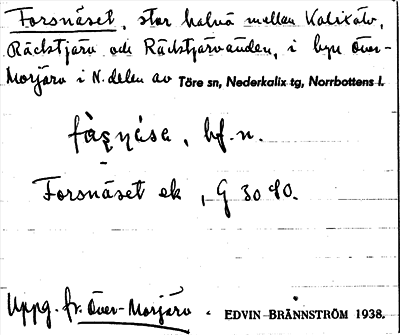 Forsnäset, stor halvö mellan Kalixälv,
Räcktjärv och Räcktjärvänden, i byn Över-
Morjärv i N. delen av Töre sn, Nederkalix tg, Norrbottens l.
bf. n.
Forsnäset ek , G 30 90.
Uppg. fr. Över-Morjärv . EDVIN BRÄNNSTRÖM 1938.